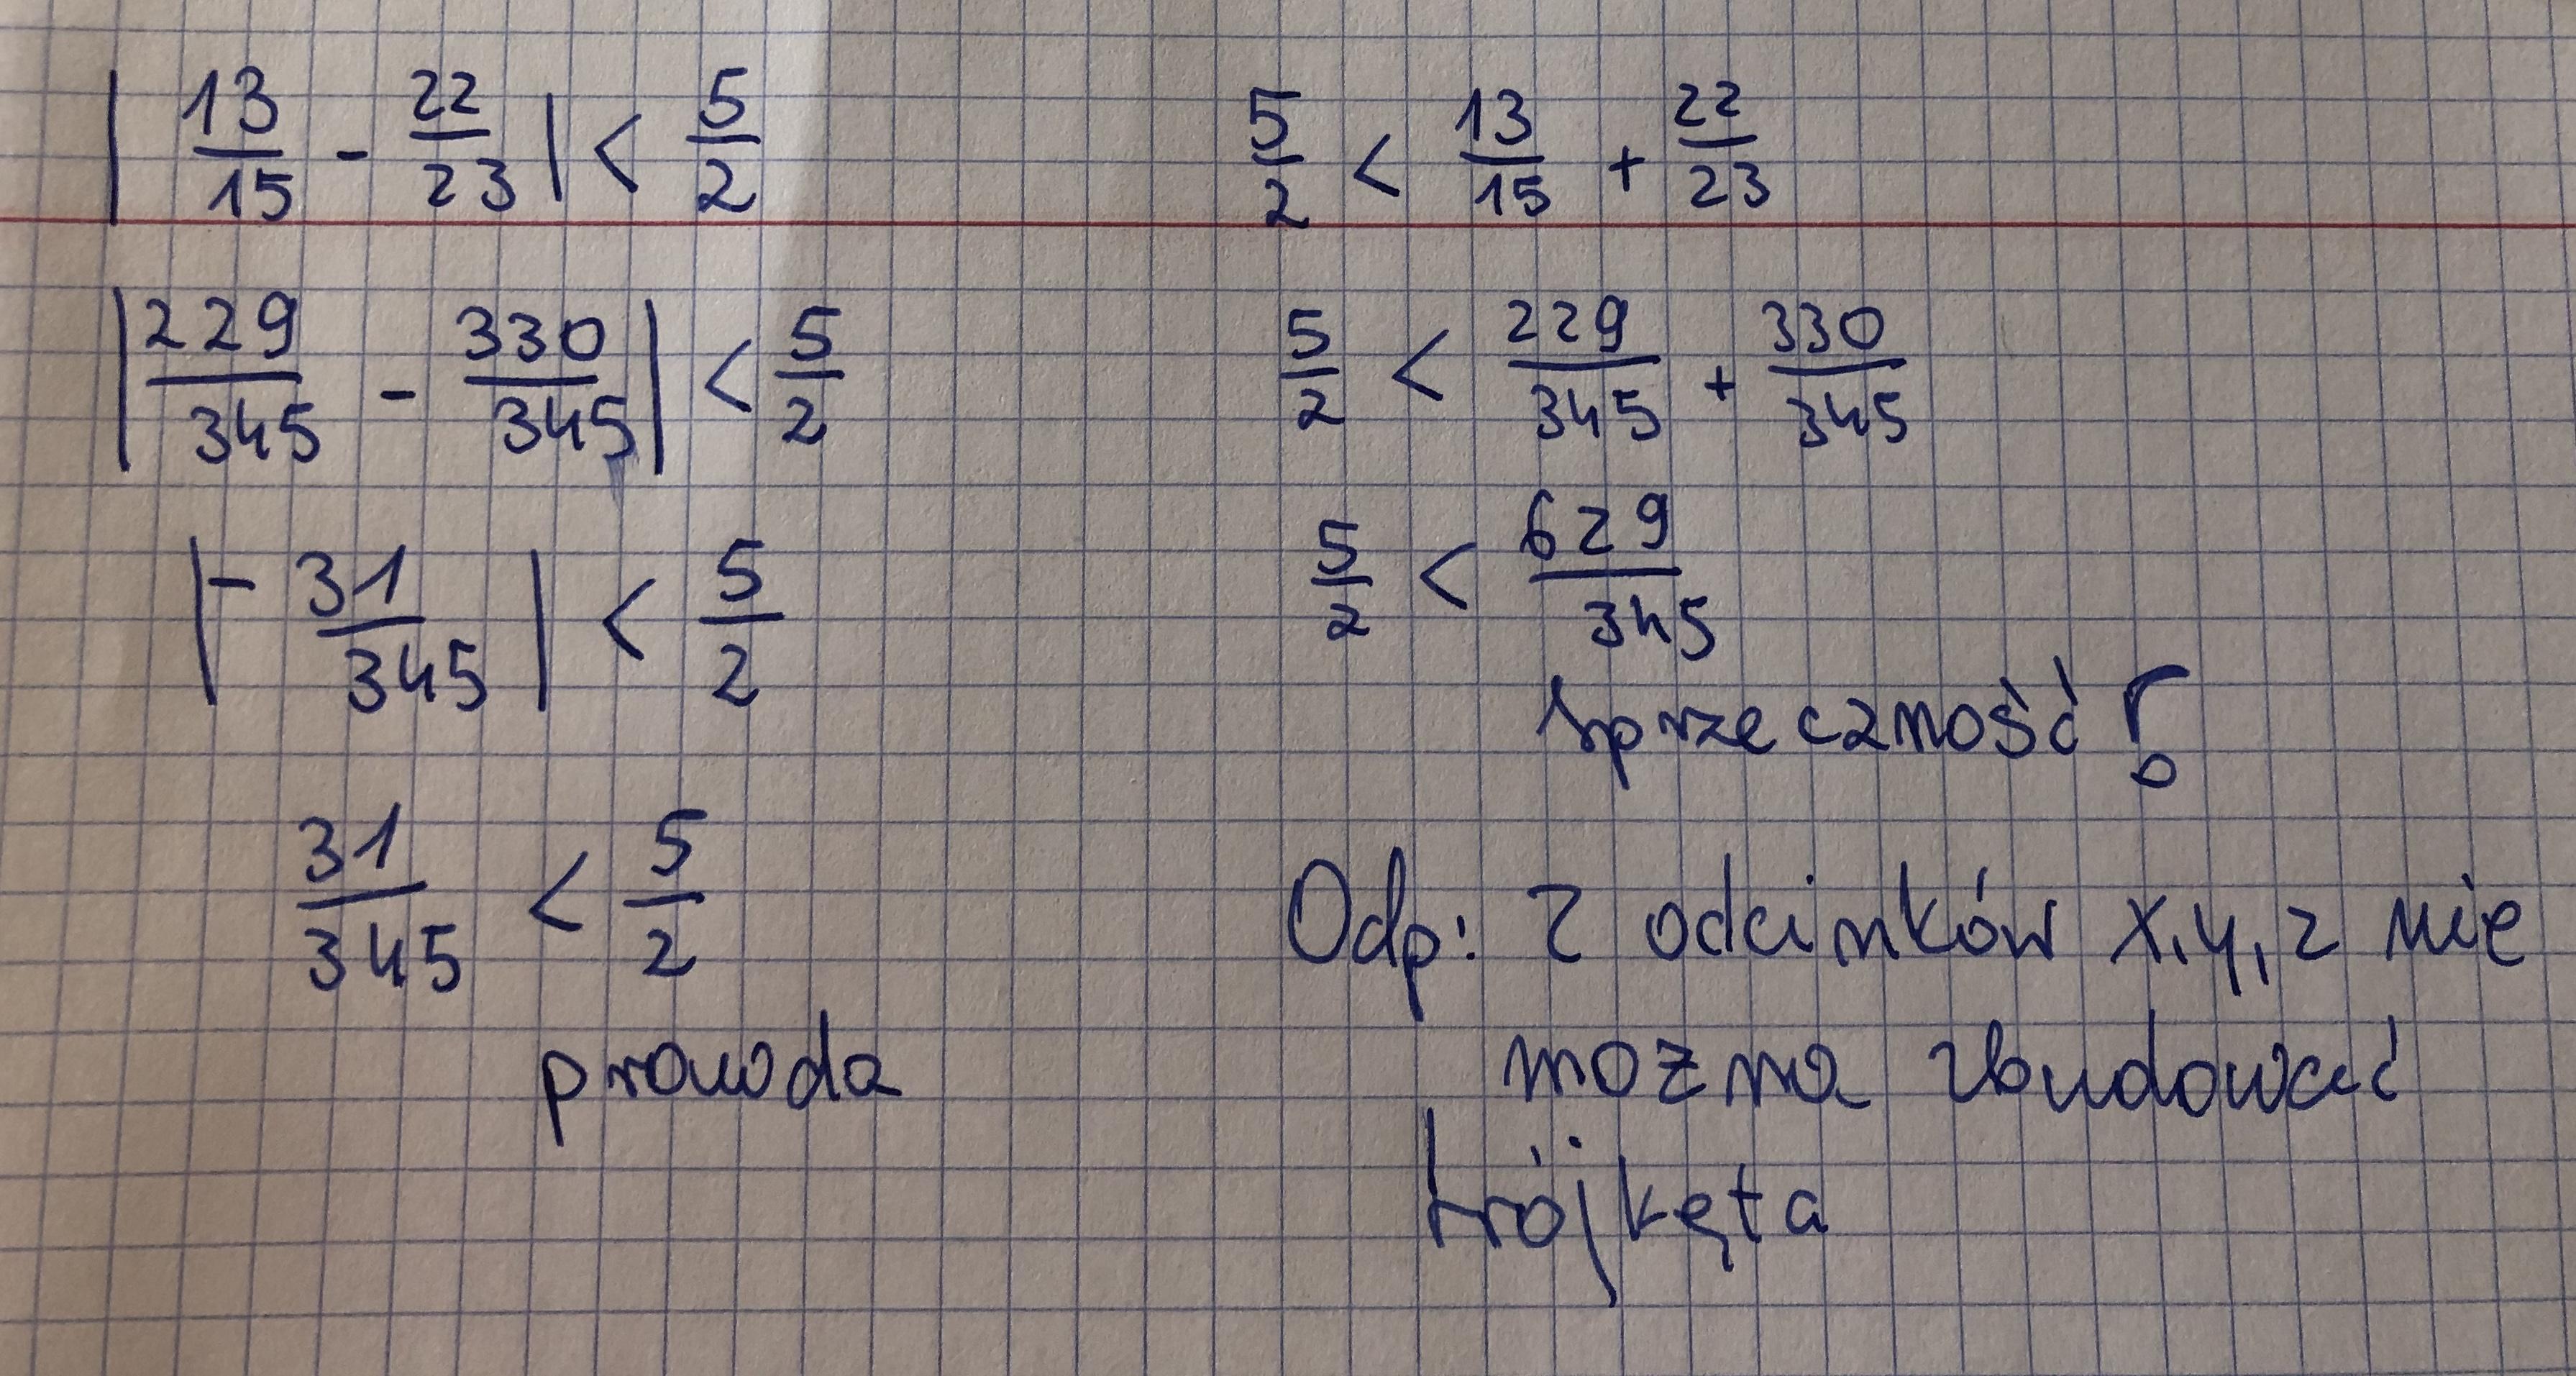 | 13/15 - 22/23 | < 5/2
| 229/345 - 330/345 | < 5/2
| - 31/345 | < 5/2
31/345 < 5/2
prawda
5/2 < 13/15 + 22/23
5/2 < 229/345 + 330/345
5/2 < 629/345
sprzeczność !
Odp: Z odcinków x, y, z nie
można zbudować
trójkęta